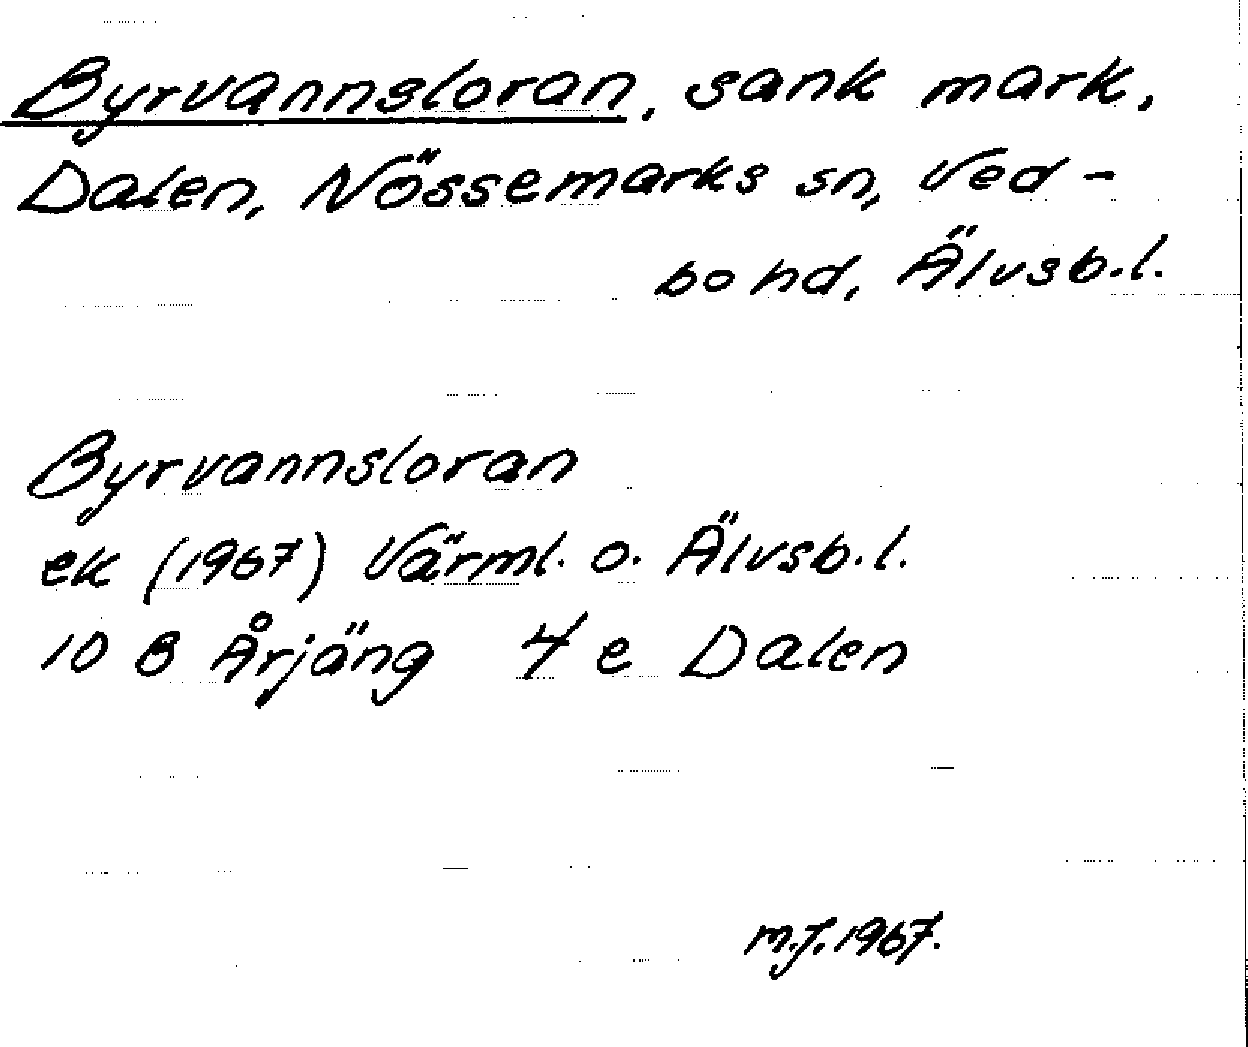 Byrvannsloran, sank mark,
Dalen, Nössemarks sn, Ved-
bo hd, Älvsb.l.
Byrvannsloran
ek (1967) Värml. o. Älvsb.l.
10 B Årjäng 4 e Dalen
M.J. 1967.